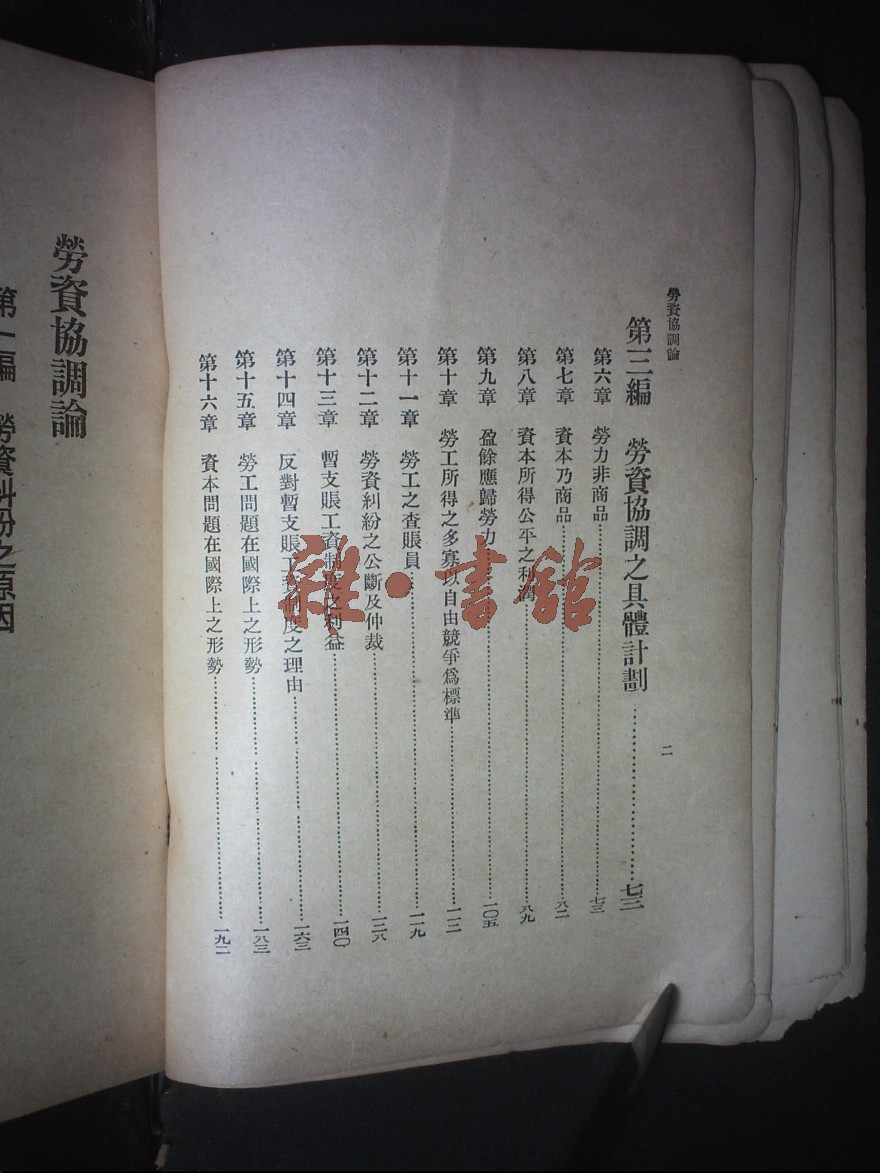 勞資協調論
二
第三編 勞資協調之具體計劃……七三
第六章 勞力非商品……七三
第七章 資本乃商品……八二
第八章 資本所得公平之利潤……八九
第九章 盈餘應歸勞力……一〇五
第十章 勞工所得之多寡以自由競爭爲標準……一一二
第十一章 勞工之查賬員……一一九
第十二章 勞資糾紛之公斷及仲裁……一二八
第十三章 暫支賬工資制度之利益……一四〇
第十四章 反對暫支賬工資制度之理由……一六三
第十五章 勞工問題在國際上之形勢……一八三
第十六章 資本問題在國際上之形勢……一九二
雜·書館
勞資協調論
第一編 勞資糾紛之原因